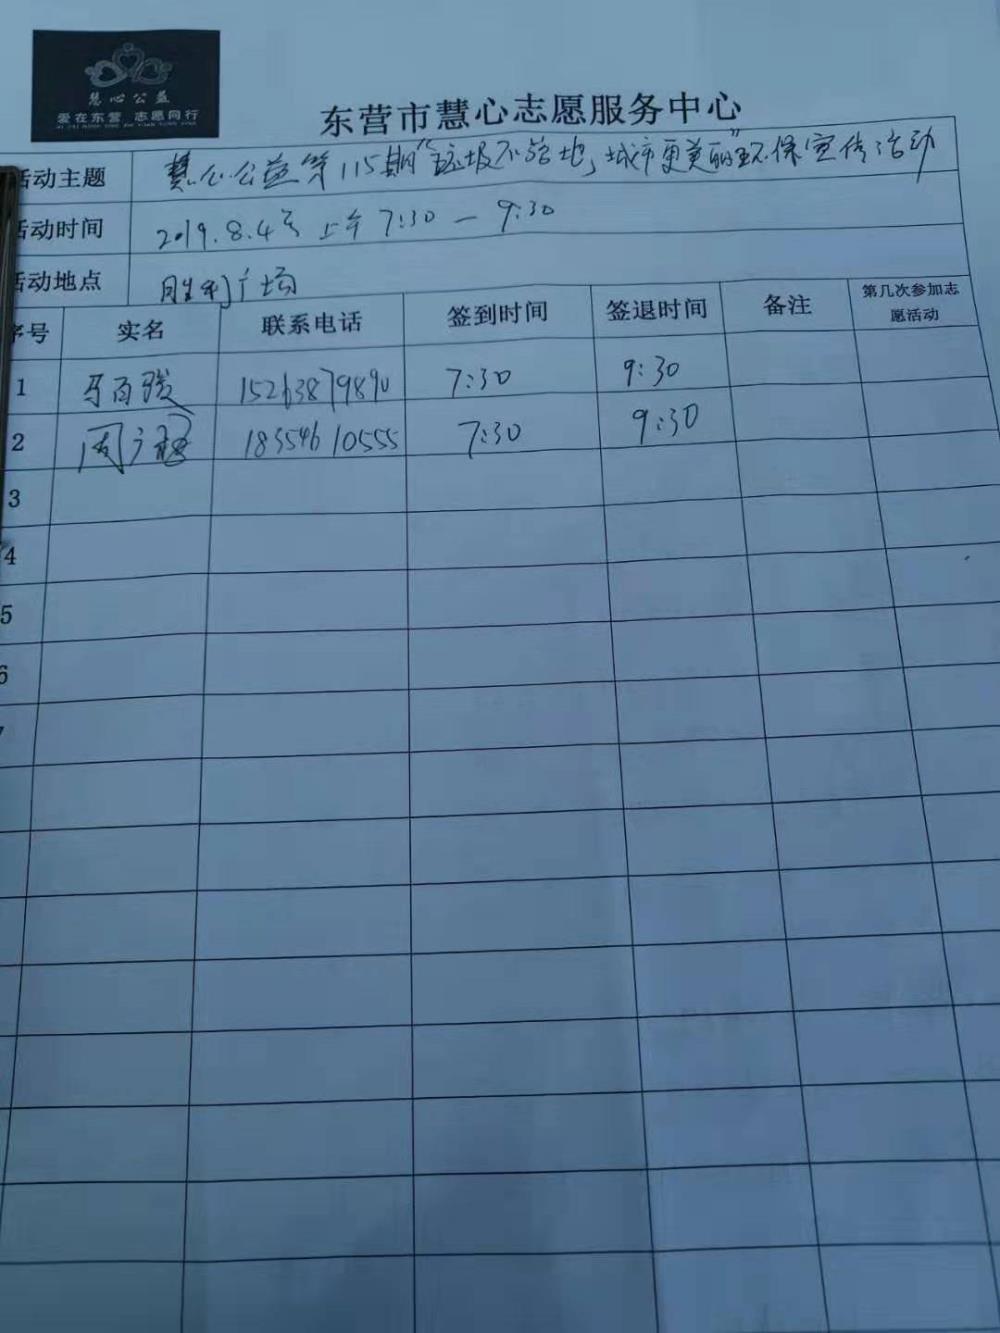 慧心公益
爱在东营 志愿同行
东营市慧心志愿服务中心
活动主题 慧心公益第115期“垃圾不落地,城市更美丽”环保宣传活动
活动时间 2019.8.4号 上午 7:30 — 9:30
活动地点 胜利广场
序号 实名 联系电话 签到时间 签退时间 备注 第几次参加志愿活动
1 马百骏 15263879890 7:30 9:30
2 周广 18354610555 7:30 9:30
3
4
5
6
7